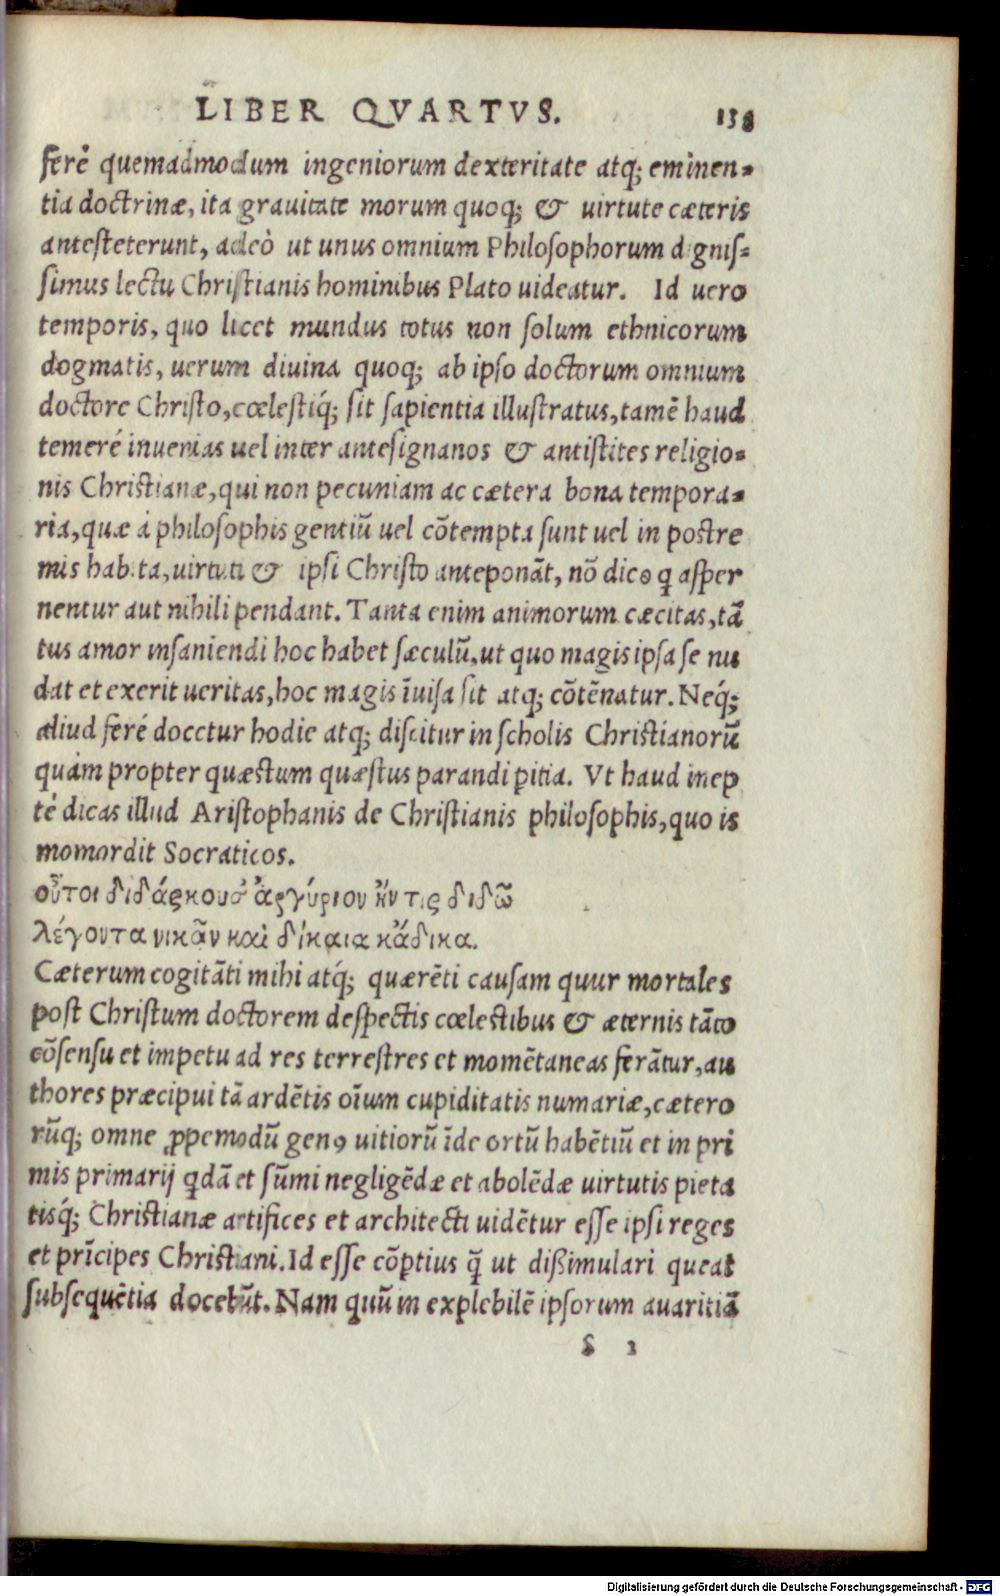 LIBER QVARTVS. 138
ferè quemadmodum ingeniorum dexteritate atq; eminen-
tia doctrinæ, ita grauitate morum quoq; & uirtute cæteris
antesteterunt, adeò ut unus omnium Philosophorum dignis-
simus lectu Christianis hominibus Plato uideatur. Id uero
temporis, quo licet mundus totus non solum ethnicorum
dogmatis, uerum diuina quoq; ab ipso doctorum omnium
doctore Christo, cœlestiq́; sit sapientia illustratus, tamē haud
temeré inuenias uel inter antesignanos & antistites religio-
nis Christianæ, qui non pecuniam ac cætera bona tempora-
ria, quæ à philosophis gentiū uel cōtempta sunt uel in postre
mis habita, uirtuti & ipsi Christo anteponāt, nō dico ꝙ asper
nentur aut nihili pendant. Tanta enim animorum cæcitas, tā
tus amor insaniendi hoc habet sæculū, ut quo magis ipsa se nu
dat et exerit ueritas, hoc magis īuisa sit atq; cōtēnatur. Neq́;
aliud feré docetur hodie atq; discitur in scholis Christianorū
quàm propter quæstum quæstus parandi ꝑitia. Vt haud inep
té dicas illud Aristophanis de Christianis philosophis, quo is
momordit Socraticos.
οὗτοι διδάσκουσ᾽ ἀργύριον ἤν τις διδῶ
λέγοντα νικᾶν καὶ δίκαια κἄδικα.
Cæterum cogitāti mihi atq́; quærēti causam quur mortales
post Christum doctorem despectis cœlestibus & æternis tāto
cōsensu et impetu ad res terrestres et momētaneas ferātur, au
thores præcipui tā ardētis oīum cupiditatis numariæ, cætero
rūq; omne ꝓpemodū genꝰ uitiorū īde ortū habētiū et in pri
mis primarij qdā et sūmi negligēdæ et abolēdæ uirtutis pieta
tisq́; Christianæ artifices et architecti uidētur esse ipsi reges
et prīcipes Christiani. Id esse cōꝑtius q̄ ut dißimulari queat
subsequētia docebūt. Nam quū in explebilē ipsorum auaritiā
S 2
Digitalisierung gefördert durch die Deutsche Forschungsgemeinschaft - DFG